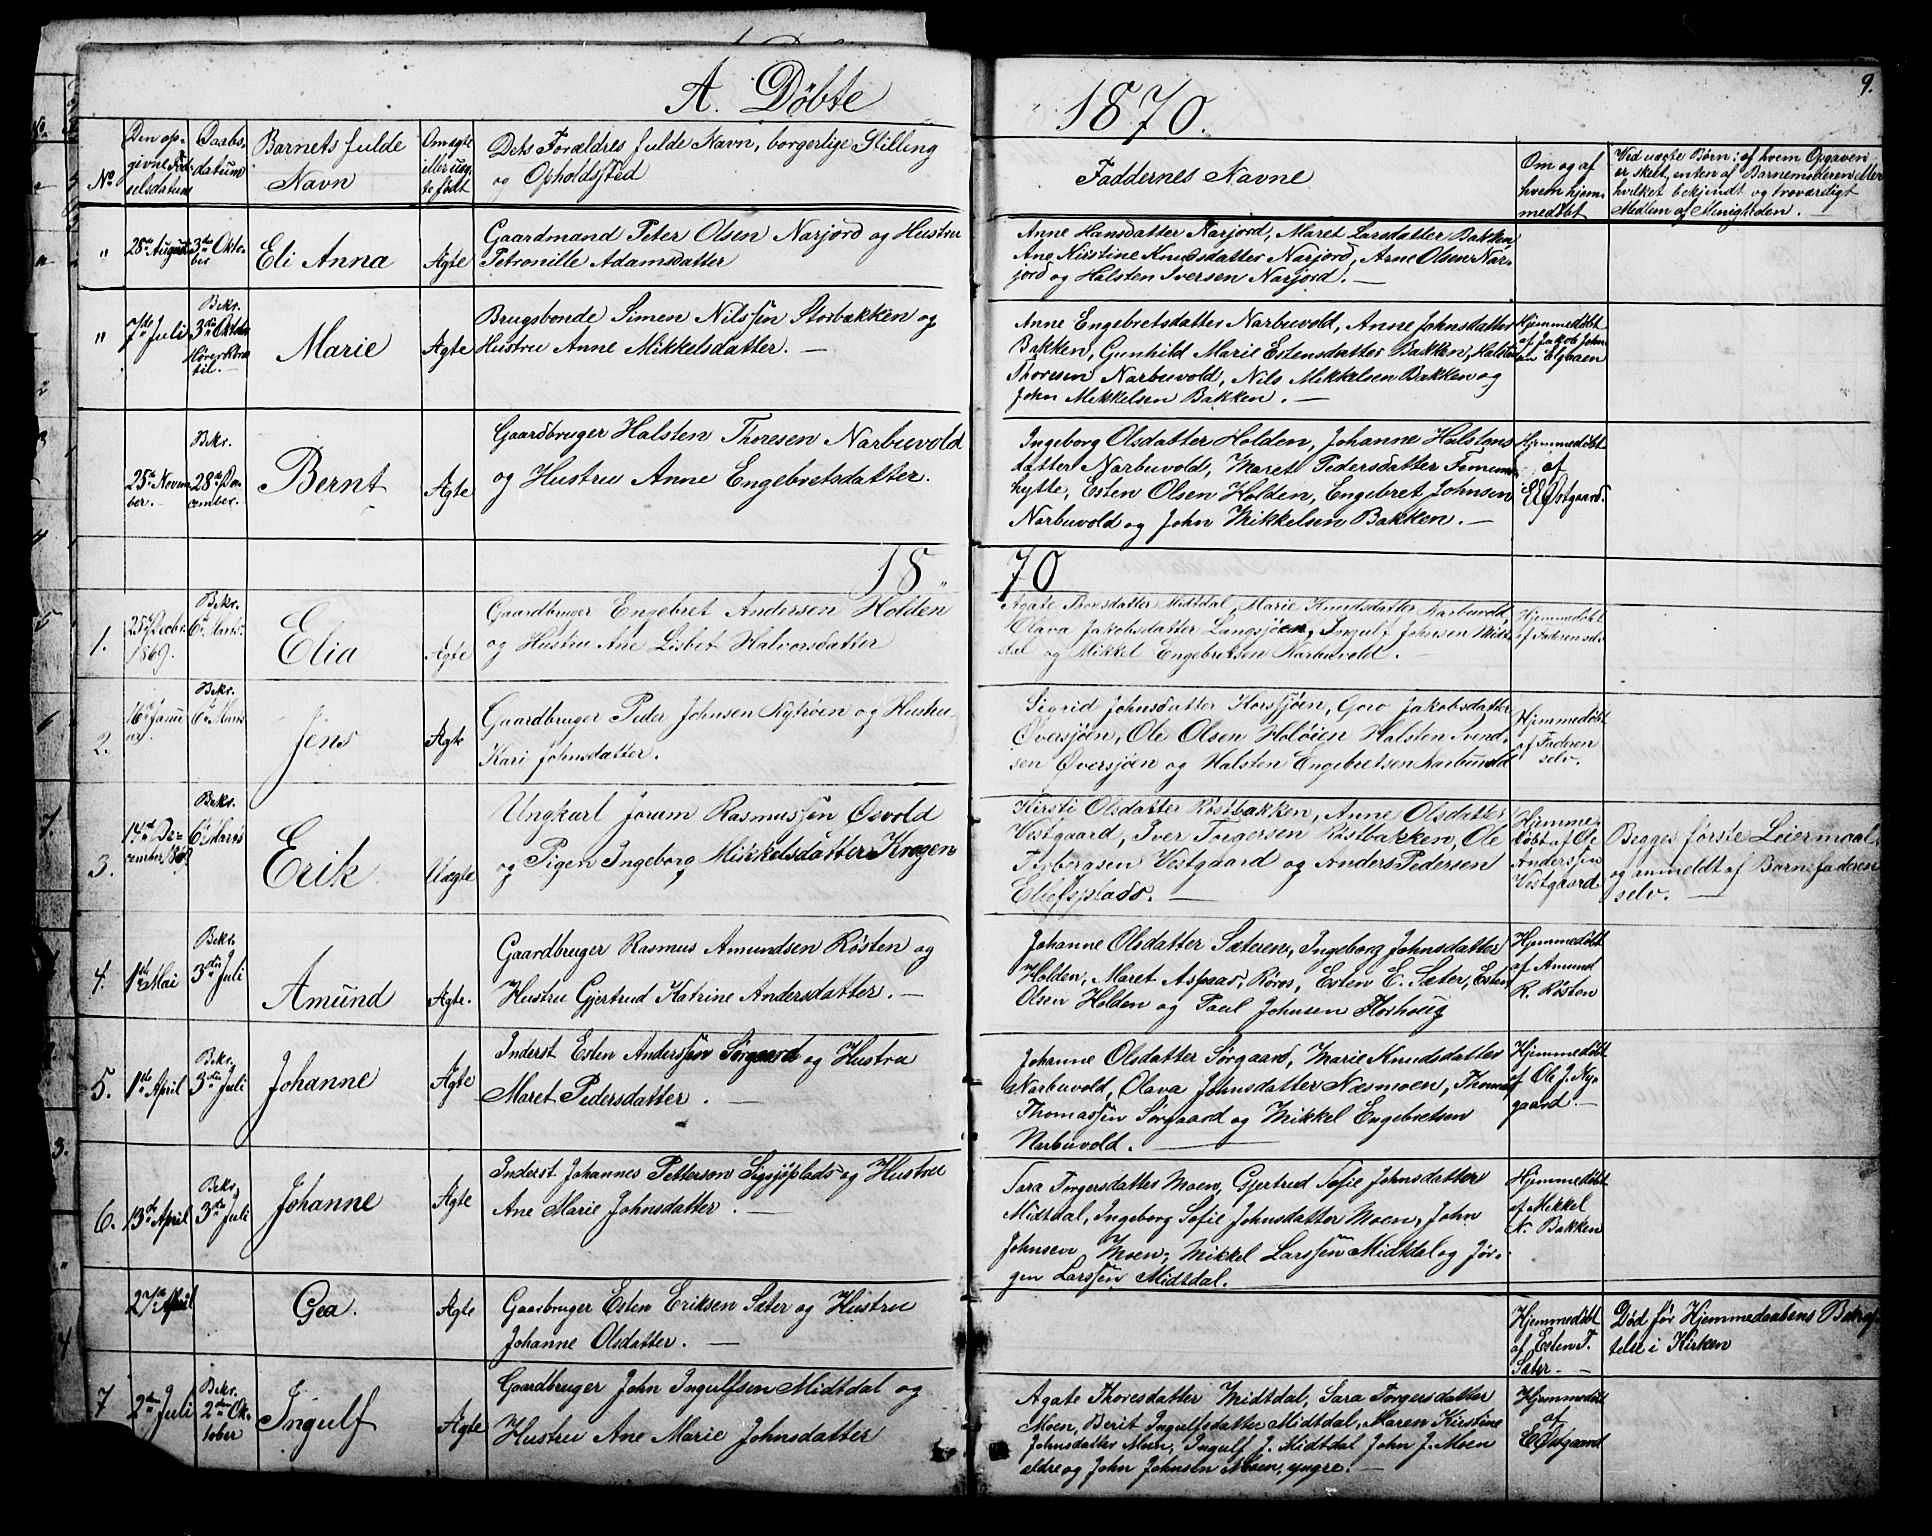 A. Døbte
1870.
9.
No
Den op-
givne Fød-
selsdatum
Daabs-
datum
Barnets fulde
Navn
Om ægte
eller uæg-
te født
Dets Forældres fulde Navn, borgerlige Stilling
og Opholdssted
Faddernes Navne
Om og af
hvem hjem-
medøbt
Ved uægte Børn: af hvem Opgaven
er skeet, enten af Barnemoderen eller
hvilket bekjendt og troværdigt
Medlem af Menigheden. —
"
28de August
3die Okto-
ber
Eli Anna
Ægte
Gaardmand Peter Olsen Narjord og Hustru
Petronille Adamsdatter
Anne Hansdatter Narjord, Maret Larsdatter Bakken,
Ane Kirstine Knudsdatter Narjord, Arne Olsen Nar-
jord og Halsten Iversen Narjord. —
"
7de Juli
Bekr.
3die Oktober
til. —
Marie
Ægte
Brugsbonde Simen Nilssen Storbakken og
Hustru Anne Mikkelsdatter. —
Anne Engebretsdatter Narbuvold, Anne Johnsdatter
Bakken, Gunhild Marie Estensdatter Bakken, Halsten
Thoresen Narbuvold, Nils Mikkelsen Bakken og
John Mikkelsen Bakken. —
Hjemmedøbt
af Jakob John-
sen Elgaaen
25de Novem-
ber. —
Bekr.
28de De-
cember.
Bernt
Ægte
Gaardbruger Halsten Thoresen Narbuvold
og Hustru Anne Engebretsdatter.
Ingeborg Olsdatter Holden, Johanne Halstens-
datter Narbuvold, Maret Pedersdatter Femund-
hytte, Esten Olsen Holden, Engebret Johnsen
Narbuvold og John Mikkelsen Bakken. —
Hjemmedøbt
af
E Østgaard.
1870
1.
25de Decbr.
1869.
Bekr.
6te Marts
Elia
Ægte
Gaardbruger Engebret Andersen Holden
og Hustru Ane Lisbet Halvorsdatter
Agate Thoresdatter Midtdal, Marie Knudsdatter Narbuvold,
Olava Jakobsdatter Langsjøen, Ingulf Johnsen Midt-
dal og Mikkel Engebretsen Narbuvold. —
Hjemmedøbt
af Faderen selv
2.
16de Janu
ar.
Bekr.
6te Marts
Jens
Ægte
Gaardbruger Peder Johnsen Nytrøen og Hustru
Kari Johnsdatter.
Sigrid Johnsdatter Korssjøen, Goro Jakobsdatter
Øversjøen, Ole Olsen Holøien Halsten Svend-
sen Øversjøen og Halsten Engebretsen Narbuvold
Hjemmedøbt
af Faderen
selv.
3.
14de De-
cember 1869
Bekr.
6te Marts
Erik
Uægte
Ungkarl Jorum Rasmussen Osvold
og Pigen Ingeborg Mikkelsdatter Krogen
Kirsti Olsdatter Røstbakken, Anne Olsdatter
Vestgaard, Iver Torgersen Røstbakken, Ole
Torborgsen Vestgaard og Anders Pedersen
Elletsplads. —
Hjemme-
døbt af Ole
Anderssen
Vestgaard
Begges første Leiermaal
og anmeldt af Barnefaderen
selv. —
4.
1ste Mai
Bekr.
3die Juli
Amund
Ægte.
Gaardbruger Rasmus Amundsen Røsten og
Hustru Gjertrud Katrine Andersdatter. —
Johanne Olsdatter Sæteren, Ingeborg Johnsdatter
Holden, Maret Aspaas, Røros, Esten E. Sæter, Esten
Olsen Holden og Paul Johnsen Florhoug
Hjemmedøbt
af Amund
R. Røsten
5.
1ste April
Bekr.
3die Juli
Johanne
Ægte
Inderst Esten Anderssen Sørgaard og Hustru
Maret Pedersdatter. —
Johanne Olsdatter Sørgaard, Marie Knudsdatter
Narbuvold, Olava Johnsdatter Næsmoen, Thomas
Thomassen Sørgaard og Mikkel Engebretsen
Narbuvold. —
Hjemmedøbt
af Ole J. Ny-
gaard. —
6.
13de April
Bekr.
3die Juli
Johanne
Ægte
Inderst Johannes Petterson Sigsjøplads og Hustru
Ane Marie Johnsdatter. —
Sara Torgersdatter Moen, Gjertrud Sofie Johnsdatter
Midtdal, Ingeborg Sofie Johnsdatter Moen, John
Johnsen Moen, Mikkel Larssen Midtdal og Jør-
gen Larssen Midtdal.
Hjemmedøbt
af Mikkel
N. Bakken
27de April
Gea.
Ægte
Gaarbruger Esten Eriksen Sæter og Hustru
Johanne Olsdatter. —
Hjemmedøbt
af Esten T.
Sæter. —
Død før Hjemmedaabens Bekræf-
telse i Kirken
7
2den Juli
Bekr.
2den Ok-
tober
Ingulf
Ægte
Gaardbruger John Ingulfsen Midtdal og
Hustru Ane Marie Johnsdatter
Agate Thoresdatter Midtdal, Sara Torgersdatter
Moen, Berit Ingulfsdatter Midtdal, Maren Kirstine
Johnsdatter Moen, Ingulf J. Midtdal John J. Moen
ældre og John Johnsen Moen, yngre. —
Hjemmedøbt
af
E Østgaard